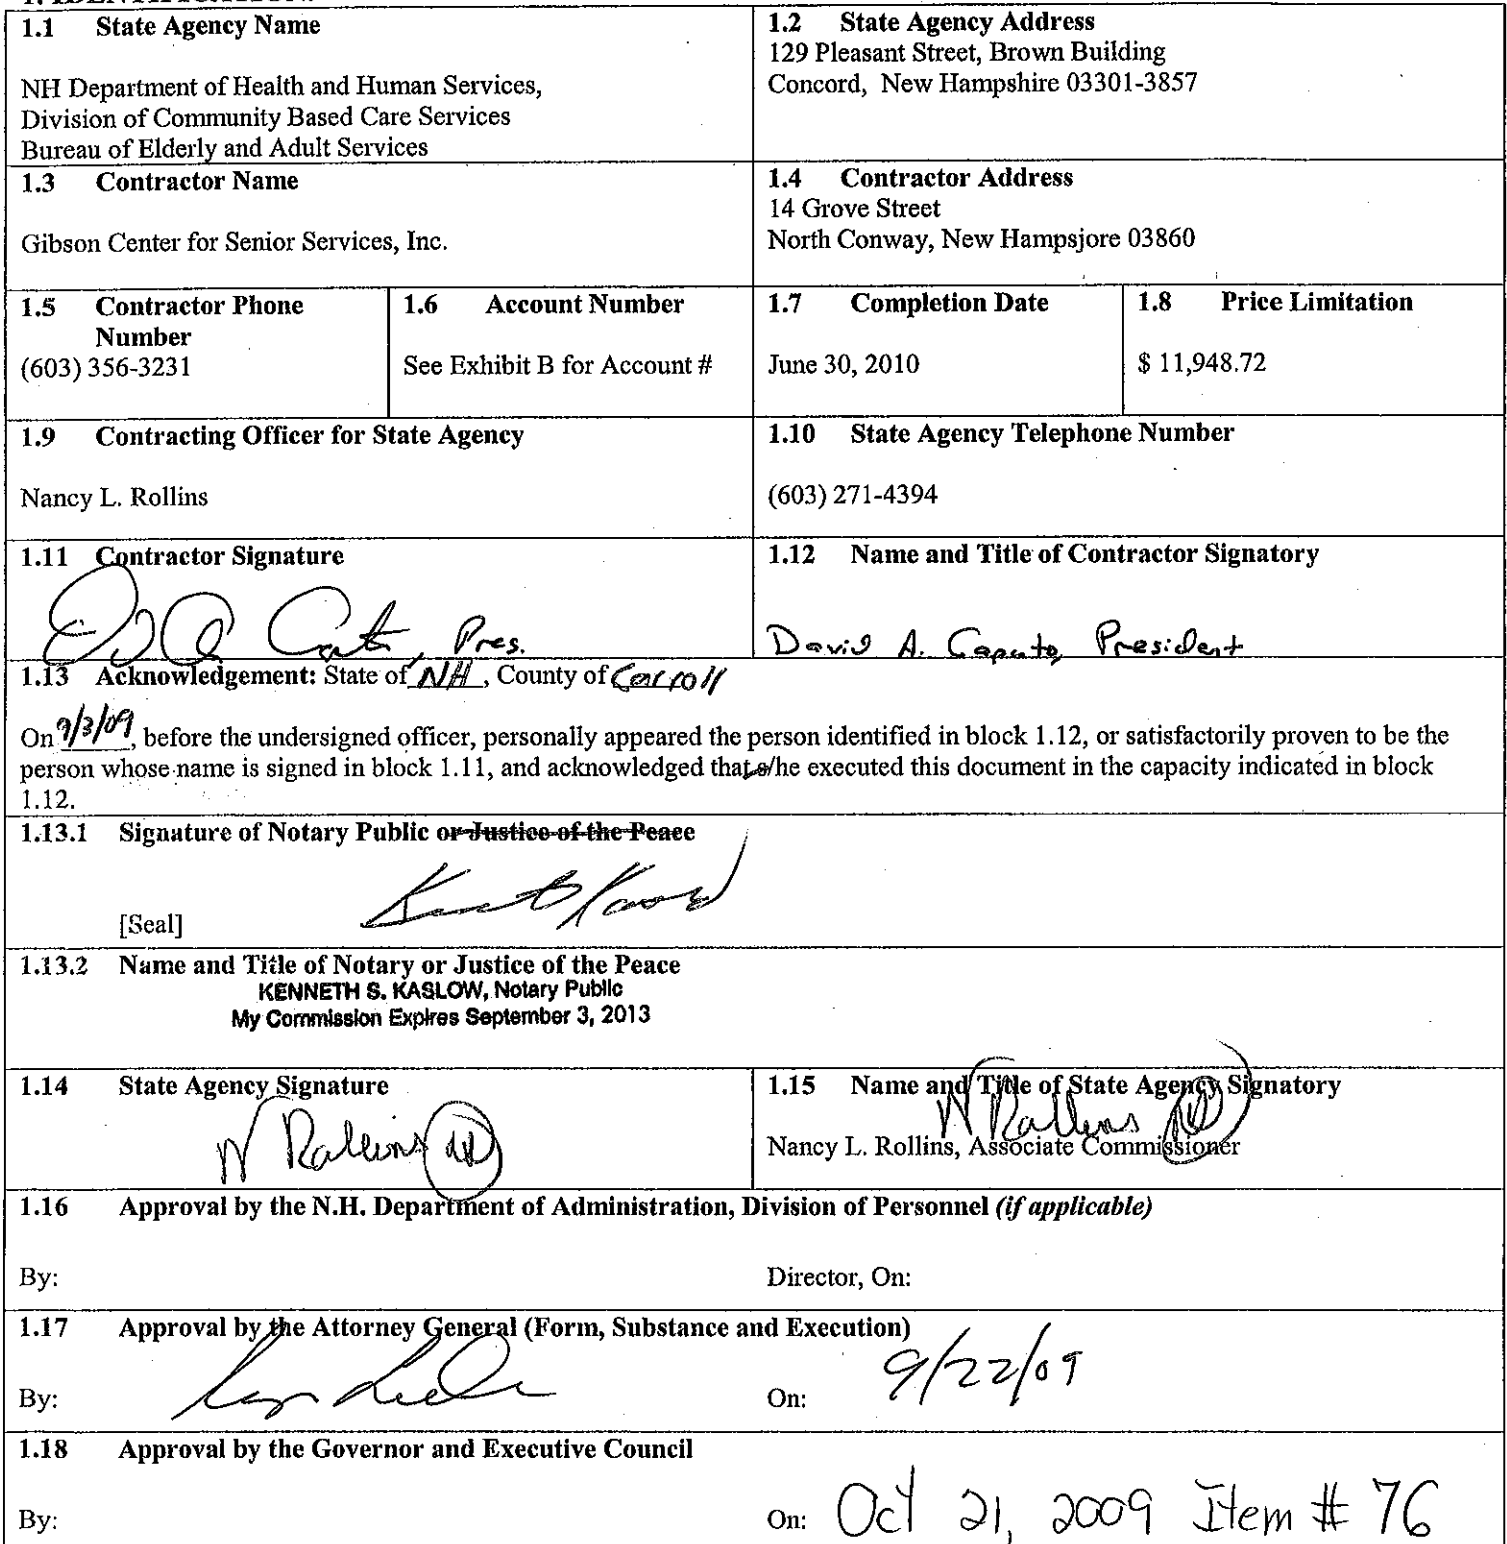 1.1 State Agency Name
NH Department of Health and Human Services,
Division of Community Based Care Services
Bureau of Elderly and Adult Services
1.2 State Agency Address
129 Pleasant Street, Brown Building
Concord, New Hampshire 03301-3857
1.3 Contractor Name
Gibson Center for Senior Services, Inc.
1.4 Contractor Address
14 Grove Street
North Conway, New Hampsjore 03860
1.5 Contractor Phone
Number
(603) 356-3231
1.6 Account Number
See Exhibit B for Account #
1.7 Completion Date
June 30, 2010
1.8 Price Limitation
$ 11,948.72
1.9 Contracting Officer for State Agency
Nancy L. Rollins
1.10 State Agency Telephone Number
(603) 271-4394
1.11 Contractor Signature
, Pres.
1.12 Name and Title of Contractor Signatory
David A. Caputo, President
1.13 Acknowledgement: State of NH, County of Carroll
On 9/3/09, before the undersigned officer, personally appeared the person identified in block 1.12, or satisfactorily proven to be the
person whose name is signed in block 1.11, and acknowledged that s/he executed this document in the capacity indicated in block
1.12.
1.13.1 Signature of Notary Public or Justice of the Peace
[Seal]
1.13.2 Name and Title of Notary or Justice of the Peace
KENNETH S. KASLOW, Notary Public
My Commission Expires September 3, 2013
1.14 State Agency Signature
N Rollins
1.15 Name and Title of State Agency Signatory
N Rollins
Nancy L. Rollins, Associate Commissioner
1.16 Approval by the N.H. Department of Administration, Division of Personnel (if applicable)
By: Director, On:
1.17 Approval by the Attorney General (Form, Substance and Execution)
By: On: 9/22/09
1.18 Approval by the Governor and Executive Council
By: On: Oct 21, 2009 Item # 76